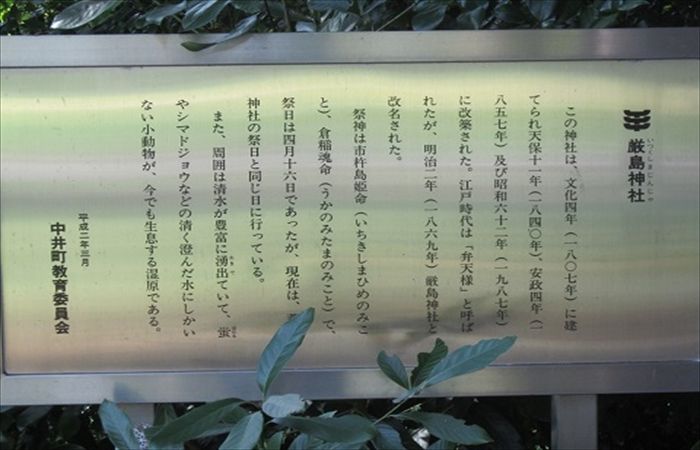 厳島神社
いつくしまじんじゃ
この神社は、文化四年（一八〇七年）に建
てられ天保十一年（一八四〇年）、安政四年（一
八五七年）及び昭和六十二年（一九八七年）
に改築された。江戸時代は「弁天様」と呼ば
れたが、明治二年（一八六九年）厳島神社と
改名された。
祭神は市杵島姫命（いちきしまひめのみこ
と）、倉稲魂命（うかのみたまのみこと）で、
祭日は四月十六日であったが、現在は、
神社の祭日と同じ日に行っている。
また、周囲は清水が豊富に湧出ていて、蛍
やシマドジョウなどの清く澄んだ水にしかい
ない小動物が、今でも生息する湿原である。
平成二年三月
中井町教育委員会